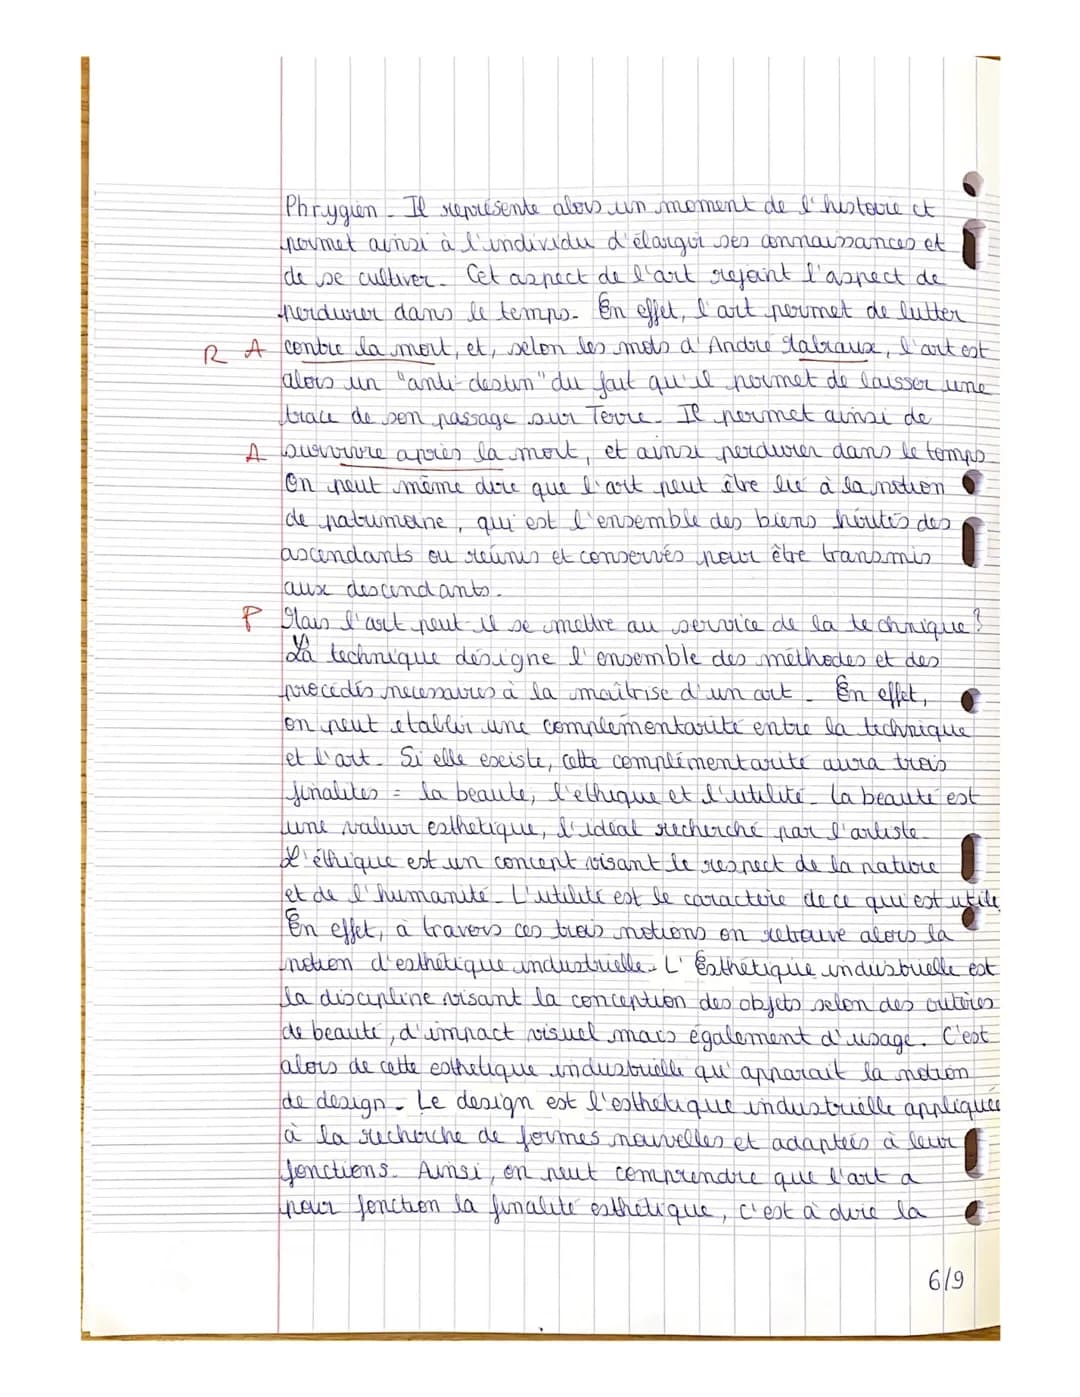 Phrygien - Il représente alors un moment de l'histoire et
permet ainsi à l'individu d'élargir ses connaissances et
de se cultiver. Cet aspect de l'art rejoint l'aspect de
perdurer dans le temps. En effet, l'art permet de lutter
R A contre la mort, et, selon les mots d'André Malraux, l'art est
alors un "anti-destin" du fait qu'il permet de laisser une
trace de son passage sur Terre. Il permet ainsi de
A survivre après la mort, et ainsi perdurer dans le temps
On peut même dire que l'art peut être lié à la notion
de patrimoine, qui est l'ensemble des biens hérités des
ascendants ou réunis et conservés pour être transmis
aux descendants.
P Mais l'art peut-il se mettre au service de la technique?
La technique désigne l'ensemble des méthodes et des
procédés necessaires à la maîtrise d'un art. En effet,
on peut etablir une complémentarité entre la technique
et l'art. Si elle existe, cette complémentarité aura trois
finalites = la beaute, l'ethique et l'utilité. La beauté est
une valeur esthetique, l'idéal recherché par l'artiste.
L'éthique est un concept visant le respect de la nature
et de l'humanité. L'utilité est le caractère de ce qui est utile
En effet, à travers ces trois notions on retrouve alors la
notion d'esthétique industrielle. L'Esthétique industrielle est
la discipline visant la conception des objets selon des critères
de beauté, d'impact visuel mais également d'usage. C'est
alors de cette esthetique industrielle qu'apparait la notion
de design. Le design est l'esthetique industrielle appliquée
à la recherche de formes nouvelles et adaptées à leur
fonctions. Ainsi, on peut comprendre que l'art a
pour fonction la finalité esthétique, c'est à dire la
6/9